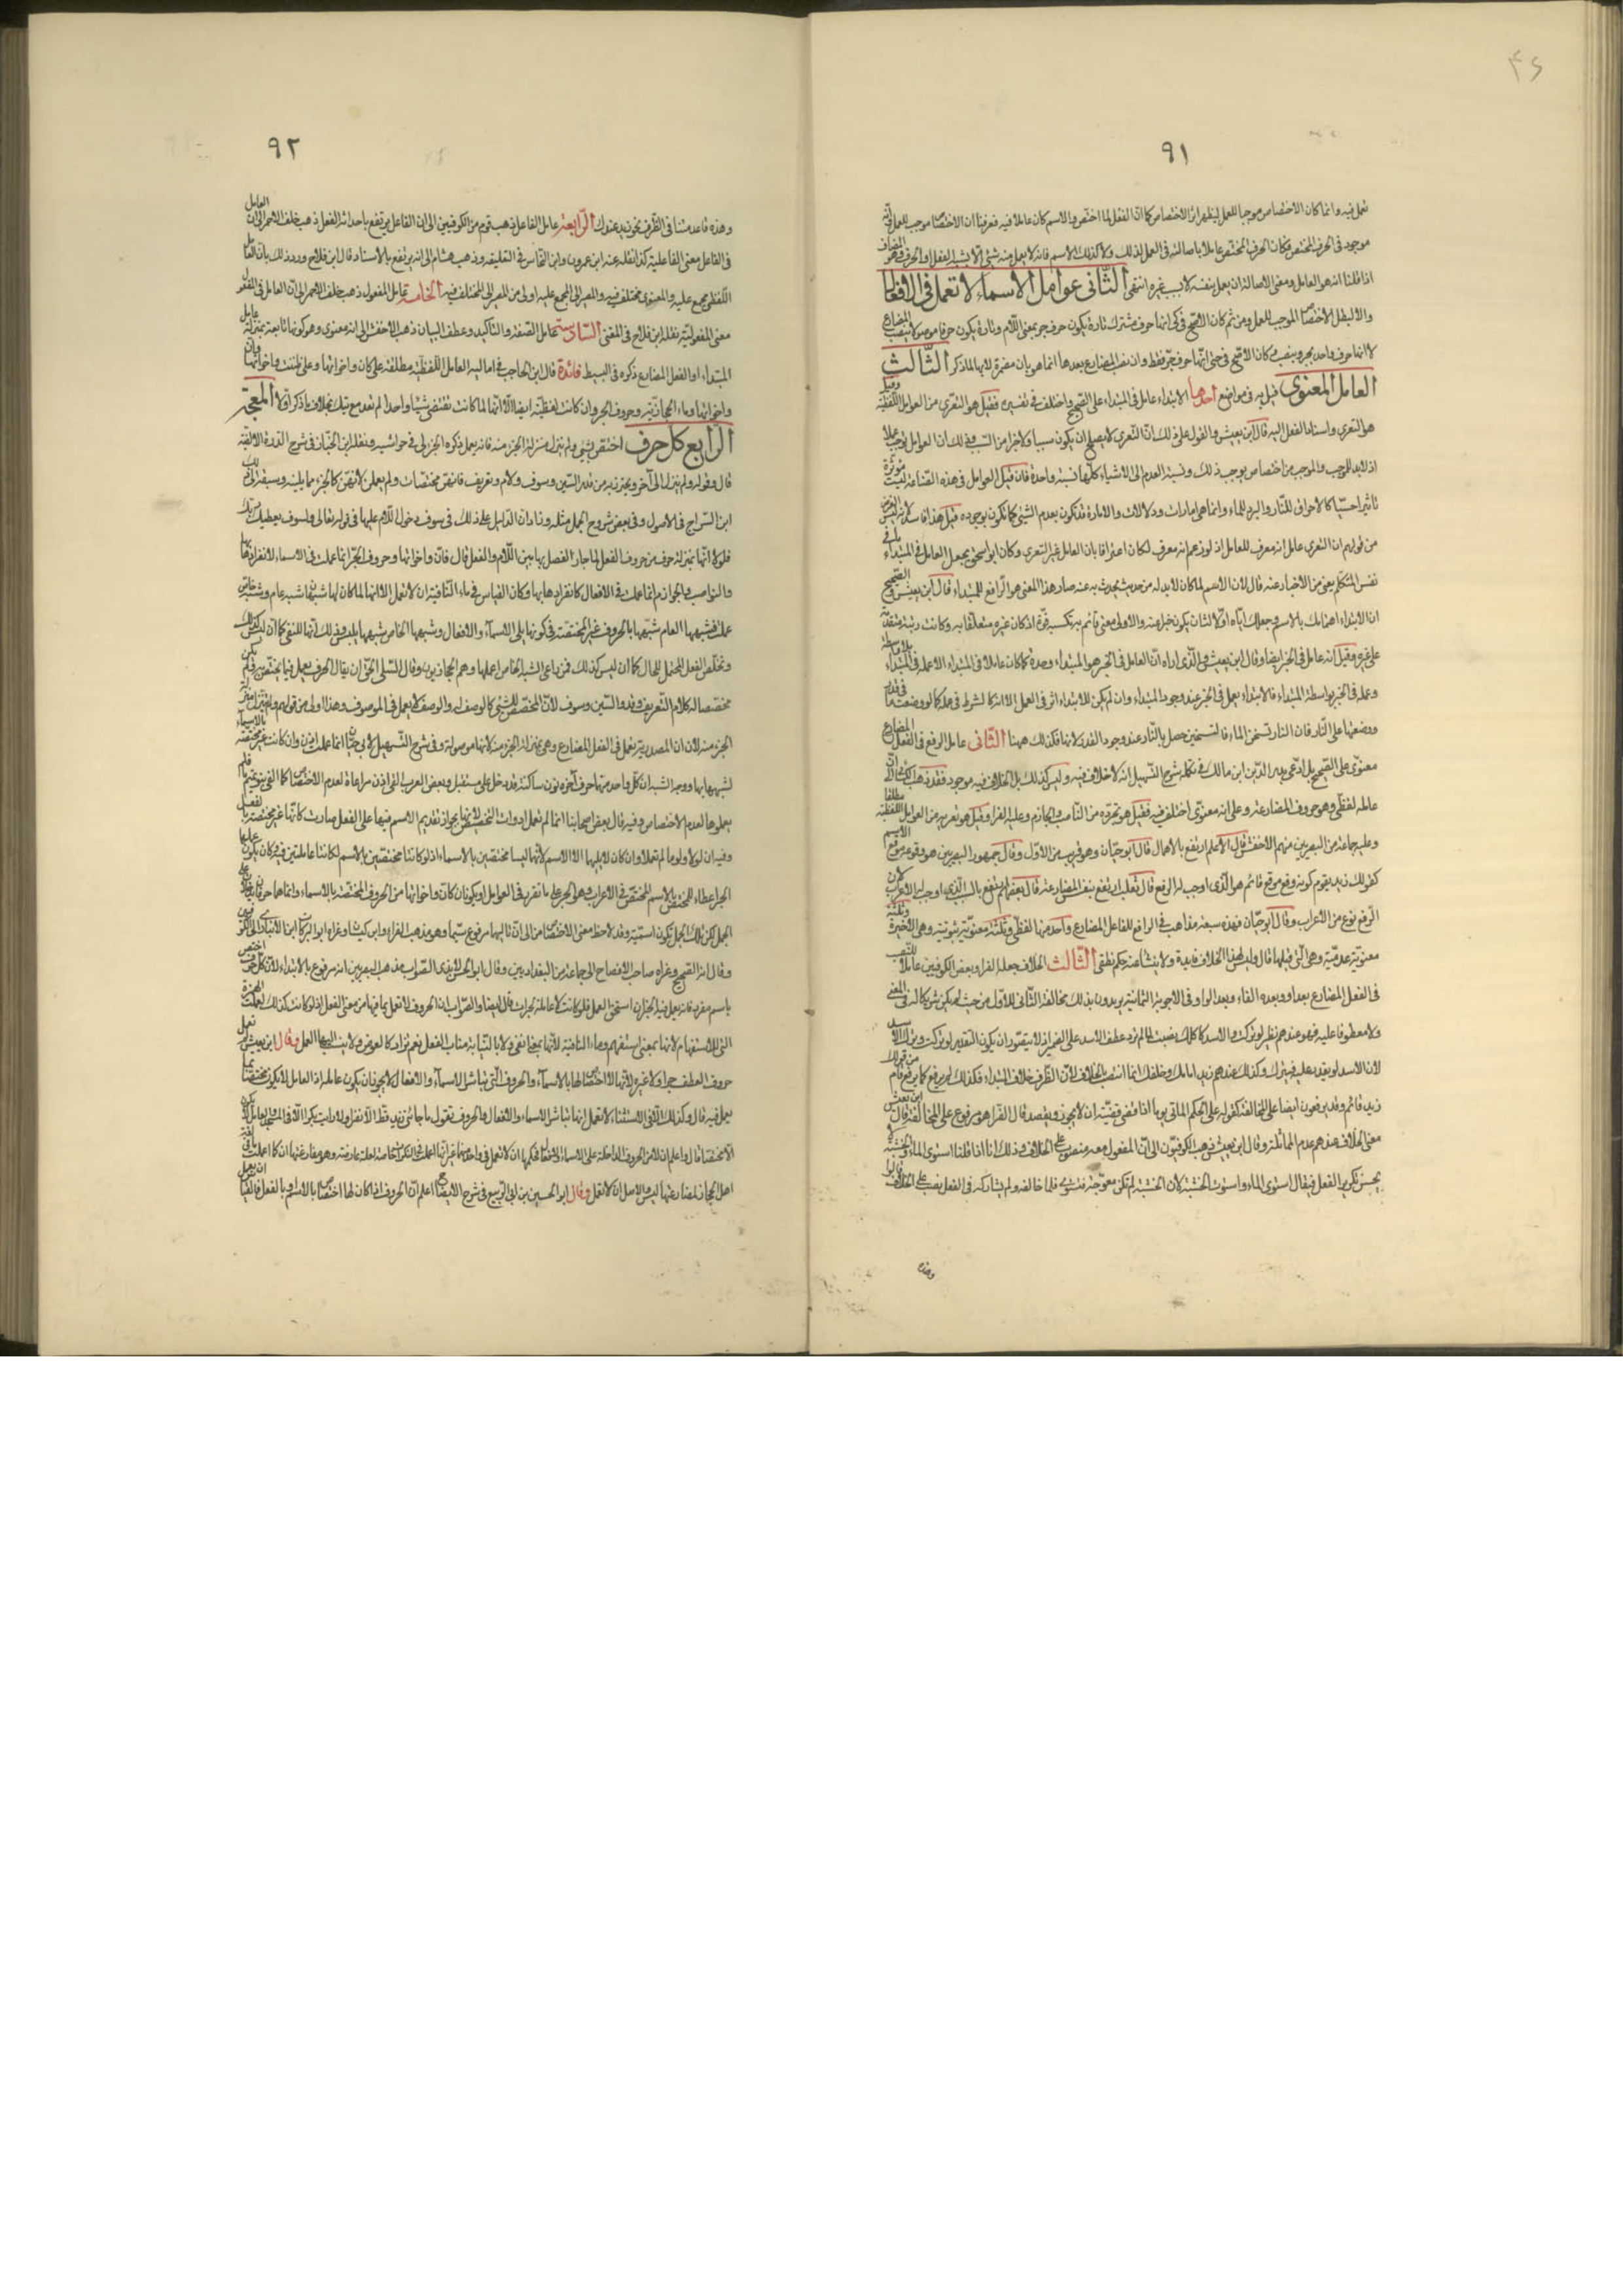 ٩١
تعمل فيه وانما كان الاختصاص موجبا للعمل ليظهر اثر الاختصاص كما ان الفعل لما اختص بالاسم كان عاملا فيه فعرفنا ان الاختصاص موجب للعمل وانه
موجود في الحرف المختص فكان الحرف المختص عاملا باصالته في العمل لذلك ولا كذلك الاسم فانه لا يعمل منه شيء الا بشبه الفعل او الحرف وهو المضاف
اذا قلنا انه هو العامل ومعنى الاصالة ان يعمل بنفسه لا بسبب غيره انتهى الثاني عوامل الاسماء لا تعمل في الافعال
والا لبطل الاختصاص الموجب للعمل ومن ثم كان الاصح في كي انها حرف مشترك تارة يكون حرف جر بمعنى اللام وتارة يكون حرفا موصولا ينصب المضارع
لا انها حرف واحد يجر وينصب وكان الاصح في حتى انها حرف جر فقط وان نصب المضارع بعدها انما هو بان مضمرة لا بها لما ذكر الثالث
العامل المعنوي قيل به في مواضع احدها الابتداء عامل في المبتداء على الصحيح واختلف في تفسيره فقيل هو التعري من العوامل اللفظية وقيل
هو التعري واسناد الفعل اليه قال ابن يعيش والقول على ذلك ان التعري لا يصلح ان يكون سببا ولا جزا من السبب وذلك ان العوامل توجب عملا
اذ لابد للموجب والموجب من اختصاص يوجب ذلك ونسبة العدم الى الاشياء كلها نسبة واحدة فان قيل العوامل في هذه الصناعة ليست مؤثرة
تاثيرا حسيا كالاحراق للنار والبرد للماء وانما هي امارات ودلالات والامارة قد تكون بعدم الشيء كما تكون بوجوده قيل هذا فاسد لانه ليس الغرض
من قولهم ان التعري عامل انه معرف للعامل اذ لو زعم انه معرف لكان اعترافا بان العامل غير التعري وكان ابو اسحق يجعل العامل في المبتداء ما في
نفس المتكلم يعني من الاخبار عنه قال لان الاسم لما كان لابد له من حديث يحدث به عنه صار هذا المعنى هو الرافع للمبتداء قال ابن يعيش والصحيح
ان الابتداء اهتمامك بالاسم وجعلك اياه اولا لثان يكون خبرا عنه والاولية معنى قائم به تكسبه قوة اذ كان غيره متعلقا به وكانت رتبته متقدمة
على غيره وقيل انه عامل في الخبر ايضا وقال ابن يعيش الذي اراه ان العامل في الخبر هو الابتداء وحده كما كان عاملا في المبتداء الا ان عمله في المبتداء بلا واسطة
وعمله في الخبر بواسطة المبتداء فالابتداء يعمل في الخبر عند وجود المبتداء وان لم يكن للمبتداء اثر في العمل الا انه كالشرط في عمله كما لو وضعت ماء في قدر
ووضعتها على النار فان النار تسخن الماء فالتسخين حصل بالنار عند وجود القدر لا بها فكذلك ههنا الثاني عامل الرفع في الفعل المضارع
معنوي على الصحيح بل ادعى بدر الدين ابن مالك في تكملة شرح التسهيل انه لا خلاف فيه وليس كذلك بل الخلاف فيه موجود فقد ذهب الكسائي الى ان
عامله لفظي وهو حروف المضارعة وعلى انه معنوي اختلف فيه فقيل هو تجرده من الناصب والجازم وعليه الفرا وقيل هو تعريه من العوامل اللفظية مطلقا
وعليه جماعة من البصريين منهم الاخفش وقال الاعلم ارتفع بالاهمال قال ابو حيان وهو قريب من الاول وقال جمهور البصريين هو وقوعه موقع الاسم
كقولك زيد يقوم كونه وقع موقع قائم هو الذي اوجب له الرفع قال ثعلب ارتفع بنفس المضارعة قال بعضهم ارتفع بالسبب الذي اوجب له الاعراب لان
الرفع نوع من الاعراب وقال ابو حيان فهذه سبعة مذاهب في الرافع للفاعل المضارع واحد منها لفظي وثلثة معنوية ثبوتية وهي الاخيرة وثلثة
معنوية عدمية وهي التي قبلها قال وليس لهذا الخلاف فايدة ولا ينشا عنه حكم نطقي الثالث الخلاف جعله الفرا وبعض الكوفيين عاملا للنصب
في الفعل المضارع بعد او وبعد الفاء وبعد الواو في الاجوبة الثمانية يريدون بذلك مخالفة الثاني للاول من حيث لم يكن شريكا له في المعنى
ولا معطوفا عليه فهو عندهم نظير لو تركت والاسد لاكلك نصبت لما لم ترد عطف الاسد على الضمير اذ لا يتصور ان يكون التقدير لو تركت وترك الاسد
لان الاسد لا يقدر عليه فيترك وكذلك عندهم زيد امامك وخلفك انما انتصب بالخلاف لان الظرف خلاف المبتداء فكذلك لم يرفع كما يرفع قائم من قولك
زيد قائم وقد يرفعون ايضا على المخالفة كقوله على الحكم الماتي يوما اذا قضى قضيته ان لا يجور ويقصد قال الفرا هو مرفوع على المخالفة قال ابن يعيش
معنى الخلاف عندهم عدم المماثلة وقال ابن يعيش ذهب الكوفيون الى ان المفعول معه منصوب على الخلاف وذلك انا اذا قلنا استوى الماء والخشبة لا
يحسن تكرير الفعل فيقال استوى الماء واستوت الخشبة لان الخشبة لم تكن معوجة فتستوى فلما خالفه ولم يشاركه في الفعل نصب على الخلاف قالوا
وهذه
٩٢
وهذه قاعدتنا في الظرف نحو زيد عندك الرابعة عامل الفاعل ذهب قوم من الكوفيين الى ان الفاعل يرتفع باحداثه الفعل ذهب خلف الاحمر الى ان العامل
في الفاعل معنى الفاعلية كذا نقله عنه ابن عمرون وابن النحاس في التعليقة وذهب هشام الى انه يرتفع بالاسناد قال ابن فلاح ورد ذلك بان العامل
اللفظي مجمع عليه والمعنوي مختلف فيه والمصير الى المجمع عليه اولى من المصير الى المختلف فيه الخامسة عامل المفعول ذهب خلف الاحمر الى ان العامل في المفعول
معنى المفعولية نقله ابن فلاح في المغني السادسة عامل الصفة والتاكيد وعطف البيان ذهب الاخفش الى انه معنوي وهو كونها تابعة بمنزلة عامل
المبتداء او الفعل المضارع ذكره في البسيط فائدة قال ابن الحاجب في اماليه العامل اللفظي مطلقه على كان واخواتها وعلى ظننت واخواتها وان
واخواتها وماء الحجازية وحروف الجر وان كانت لفظية ايضا الا انها لما كانت تقتضي شيئا واحدا لم تعد مع تيك بخلاف ما ذكر اولا المبحث
الرابع كل حرف اختص بشيء ولم ينزل منزلة الجزء منه فانه يعمل ذكره الجزولي في حواشيه ونقله ابن الخباز في شرح الدرة الالفية
قال وقوله ولم ينزل الى آخره يحترز به من قد والسين وسوف ولام التعريف فانهن مختصات ولم يعملن لانهن كالجزء مما يلينه وسبقه الى ذلك
ابن السراج في الاصول وفي بعض شروح الجمل مثله وزاد ان الدليل على ذلك في سوف دخول اللام عليها في قوله تعالى ولسوف يعطيك ربك
فلولا انها بمنزلة حرف من حروف الفعل لما جاز الفصل بها بين اللام والفعل قال فان واخواتها وحروف الجر انما عملت في الاسماء لانفرادها بها
والنواصب والجوازم انما عملت في الافعال لانفرادها بها وكان القياس في ماء النافية ان لا تعمل الا انها لما كان لها شبهان شبه عام وشبه خاص
عملت فشبهها العام شبهها بالحروف غير المختصة في كونها تلي الاسماء والافعال وشبهها الخاص شبهها بليس وذلك انها للنفي كما ان ليس كذلك
وتخلص الفعل المحتمل للحال كما ان ليس كذلك فمن راعى الشبه الخاص اعملها وهم الحجازيون وقال الشلوبين ان يقال الحرف يعمل فيما يختص به ولم يكن
مخصصا له كلام التعريف وقد والسين وسوف لان المخصص للشيء كالوصف له والوصف لا يعمل في الموصوف وهذا اولى من قولهم ولم يتنزل منزلة
الجزء منه لان ان المصدرية تعمل في الفعل المضارع وهي بمنزلة الجزء منه لانها موصولة وفي شرح التسهيل لابي حيان انما عملت اذن وان كانت غير مختصة بالاسماء
لشبهها بها ووجه الشبه ان كل واحد منها حرف آخره نون ساكنة قد دخل على مستقبل وبعض العرب الغى اذن مراعاة لعدم الاختصاص كما الغى بنو تميم ما فلم
يعملوها لعدم الاختصاص وفيه قال بعض اصحابنا انما لم تعمل ادوات التحضيض لانها يجوز تقديم الاسم فيها على الفعل صارت كانها غير مختصة بالفعل
وفيه ان لولا ولوما لم تعملا وان كان لا يليهما الا الاسم لانهما ليسا مختصين بالاسماء اذ لو كانتا مختصتين بالاسم لكانتا عاملتين فيه وكان يكون عملها
الجر اعطاء للمختص بالاسم المختص في الاعراب وهو الجر على ما تقرر في العوامل او يكونان كان واخواتها من الحروف المختصة بالاسماء وانما هما حرفا ابتداء
وقال انه الصحيح وعزاه صاحب الافصاح الى جماعة من البغداديين وقال ابو الحسن الابدي الصواب مذهب البصريين انه مرفوع بالابتداء لان كل حرف اختص
باسم مفرد فانه يعمل فيه الجر ان استحق العمل فلو كانت لا عاملة لجرت قال ايضا والصواب ان الحروف لا تعمل بما فيها من معنى الفعل اذ لو كانت كذلك لعملت الهمزة
التي للاستفهام لانها بمعنى استفهم وماء النافية لانها بمعنى انفي ولا بالنيابة مناب الفعل نعم تزاد كالعوض ولا ينسب اليها العمل وقال ابن يعيش تعمل
حروف العطف جرا ولا غيره لانها لا اختصاص لها بالاسماء والحروف التي تباشر الاسماء والافعال لا يجوز ان يكون عاملا اذ العامل لا يكون الا مختصا بما
يعمل فيه قال وكذلك الا في الاستثناء لا تعمل لانها تباشر الاسماء والافعال والحروف تقول ما جاءني زيد قط الا يقرا ولا رايت بكرا الا في المسجد والعامل لا يكون
الا مختصا قال واعلم ان لا من الحروف الداخلة على الاسماء والافعال فحكمها ان لا تعمل في واحد منهما غير انها اعملت في النكرات خاصة لعلة عارضة وهو مضارعتها ان كما اعملت ما في لغة
اهل الحجاز لمضارعتها ليس والاصل ان لا تعمل وقال ابو الحسين بن ابي الربيع في شرح الايضاح اعلم ان الحروف اذا كان لها اختصاص بالاسم او بالفعل فالقياس ان تعمل